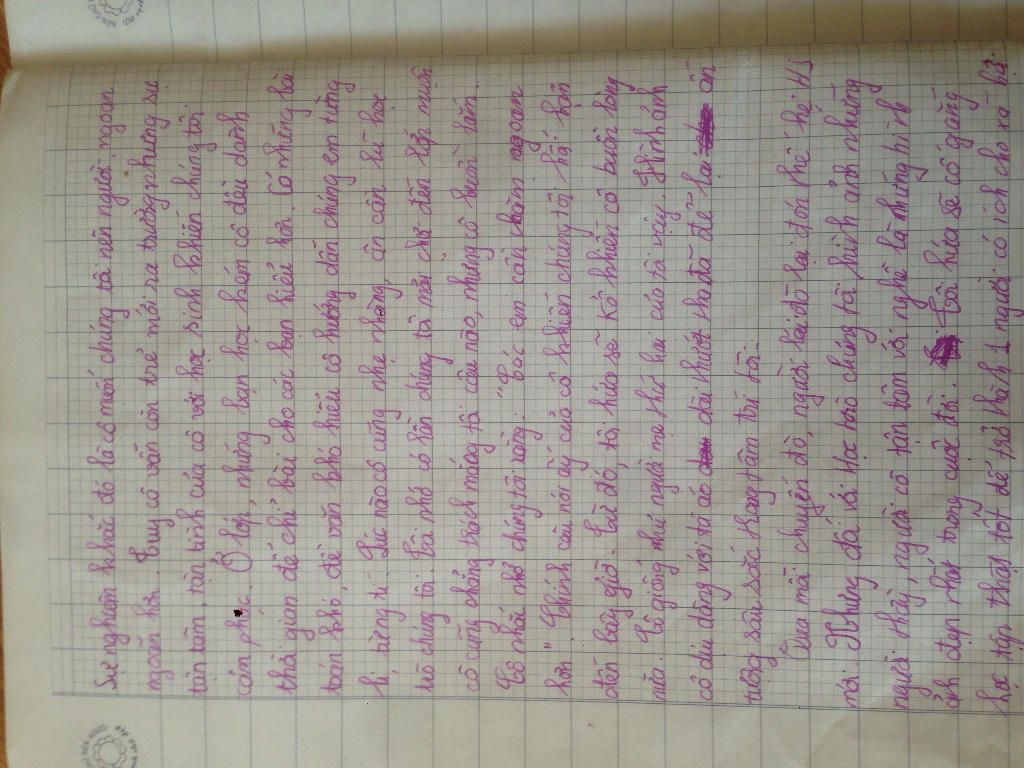 Sự nghiêm khắc đó là cô muốn chúng tôi nên người, ngoan
ngoãn hơn. Tuy cô vẫn còn trẻ mới ra trường nhưng sự
tận tâm, tận tình của cô với học sinh khiến chúng tôi
cảm phục. Ở lớp, những bạn học kém cô đều dành
thời gian để chỉ bài cho các bạn hiểu hơn. Có những bài
toán khó, đề văn khó hiểu cô hướng dẫn chúng em từng
li, từng tí. Lúc nào cô cũng nhẹ nhàng, ân cần với học
trò chúng tôi. Tôi nhớ có lần chúng tôi mải chơi đến lớp muộn
cô cũng chẳng trách mắng tôi câu nào, nhưng cô buồn lắm.
Cô nhắc nhở chúng tôi rằng: "Các em cần chăm ngoan
hơn" Chính câu nói ấy của cô khiến chúng tôi hối hận
đến bây giờ. Từ đó, tôi hứa sẽ ko khiến cô buồn lòng
nữa. Cô giống như người mẹ thứ hai của tôi vậy. Hình ảnh
cô dịu dàng với tà áo dài thướt tha đã để lại ấn
tượng sâu sắc trong tâm trí tôi.
Qua mỗi chuyến đò, người lái đò lại đón thế hệ HS
mới. Nhưng đối với học trò chúng tôi hình ảnh những
người thầy, người cô tận tâm với nghề là những hình
ảnh đẹp nhất trong cuộc đời. Tôi hứa sẽ cố gắng
học tập thật tốt để trở thành 1 người có ích cho xã hội.